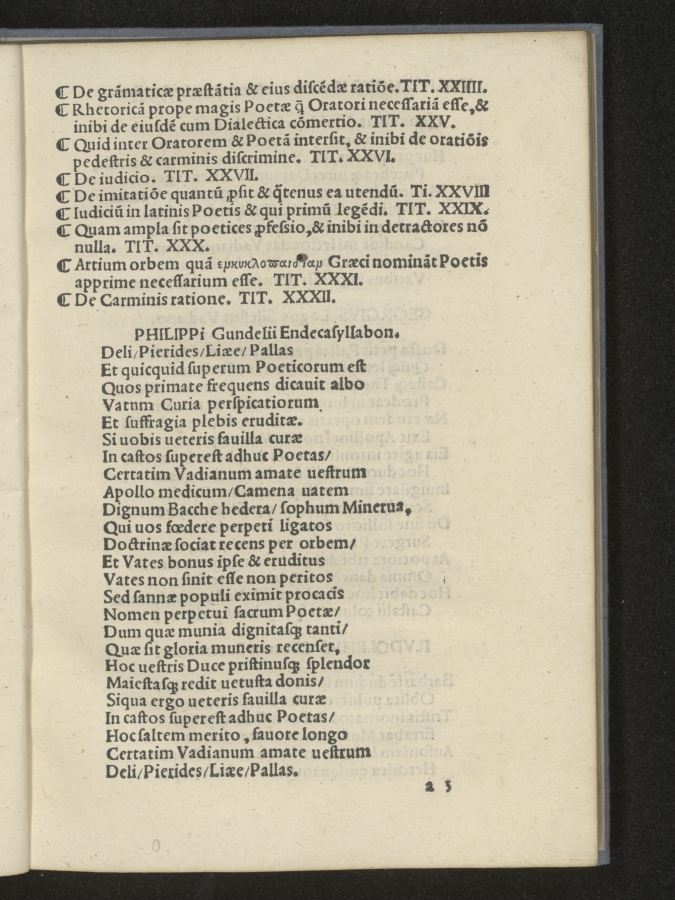 ¶ De grāmaticæ præſtātia & eius diſcēdæ ratiōe. TIT. XXIIII.
¶ Rhetoricā prope magis Poetæ q̄ Oratori neceſſariā eſſe, &
inibi de eiuſdē cum Dialectica cōmertio. TIT. XXV.
¶ Quid inter Oratorem & Poetā interſit, & inibi de oratiōis
pedeſtris & carminis diſcrimine. TIT. XXVI.
¶ De iudicio. TIT. XXVII.
¶ De imitatiōe quantū ꝓſit & q̄tenus ea utendū. Ti. XXVIII
¶ Iudiciū in latinis Poetis & qui primū legēdi. TIT. XXIX.
¶ Quam ampla ſit poetices ꝓfeſſio, & inibi in detractores nō
nulla. TIT. XXX.
¶ Artium orbem quā Græci nomināt Poetis
apprime neceſſarium eſſe. TIT. XXXI.
¶ De Carminis ratione. TIT. XXXII.
PHILIPPi Gundelii Endecaſyllabon.
Deli/Pierides/Liæe/Pallas
Et quicquid ſuperum Poeticorum eſt
Quos primate frequens dicauit albo
Vatum Curia perſpicatiorum
Et ſuffragia plebis eruditæ.
Si uobis ueteris fauilla curæ
In caſtos ſupereſt adhuc Poetas/
Certatim Vadianum amate ueſtrum
Apollo medicum/Camena uatem
Dignum Bacche hedera/ ſophum Minerua,
Qui uos fœdere perpeti ligatos
Doctrinæ ſociat recens per orbem/
Et Vates bonus ipſe & eruditus
Vates non ſinit eſſe non peritos
Sed ſannæ populi eximit procacis
Nomen perpetui ſacrum Poetæ/
Dum quæ munia dignitaſqꝫ tanti/
Quæ ſit gloria muneris recenſet,
Hoc ueſtris Duce priſtinuſqꝫ ſplendor
Maieſtaſqꝫ redit uetuſta donis/
Siqua ergo ueteris fauilla curæ
In caſtos ſupereſt adhuc Poetas/
Hoc ſaltem merito, fauore longo
Certatim Vadianum amate ueſtrum
Deli/Pierides/Liæe/Pallas.
a 3